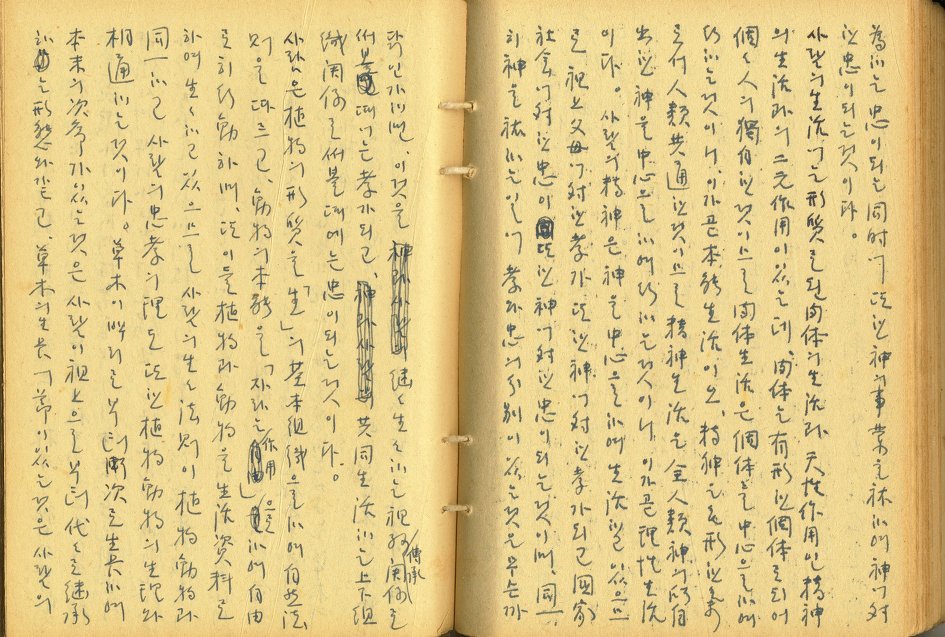 為하는 忠이되는 同时에 또한 神의 事業을 祐하여 神에 対
한 忠이되는것이다。
사람의 生活에는 形质로된 肉体의 生活과 天性作用인 精神
의 生活과의 二元作用이 있는데, 肉体는 有形한 個体로 되어
個々人의 獨自한 것이므로 肉体生活은 個体를 中心으로하여
行하는것이니, 이가곧 本能生活이오, 精神은 無形한
로서 人類共通한 것이므로 精神生活은 全人類 神에
出한 神을 中心으로 하여 行하는것이니 이가곧 理性生活
이다。 사람의 精神은 神을 中心으로하여 生活하고 있으므
로 祖上父母에 対한 孝가 또한 神에 対한 孝가되고 國家
社会에 対한 忠이 또한 神에 対한 忠이되는것이며, 同一
히 神을 祐하는일에 孝와 忠의 分別이 있는것은 무슨까
닭인가하면, 이것을 繼々生々하는 祖孫傳承関係로
써볼때에는 孝가되고, 共同生活하는 上下組
織関係로 써볼때에는 忠이되는것이다。
사람은 植物의 形质을「生」의 基本組織으로하여 自然法
则을 따르고, 動物의 本能을「자라는作用」으로하여 自由
로히 行動하며, 또 이들 植物과 動物을 生活資料로
하여 生々하고 있으므로 사람의 生々法则이 植物動物과
同一하고 사람의 忠孝의 理도 또한 植物動物의 生理와
相通하는것이다。 草木이 뿌리로부터 漸次로 生長하여
本末의 次序가 있는것은 사람이 祖上으로부터 代々로 継承
하는 形態와같고, 草木의 生長에 節이 있는것은 사람의